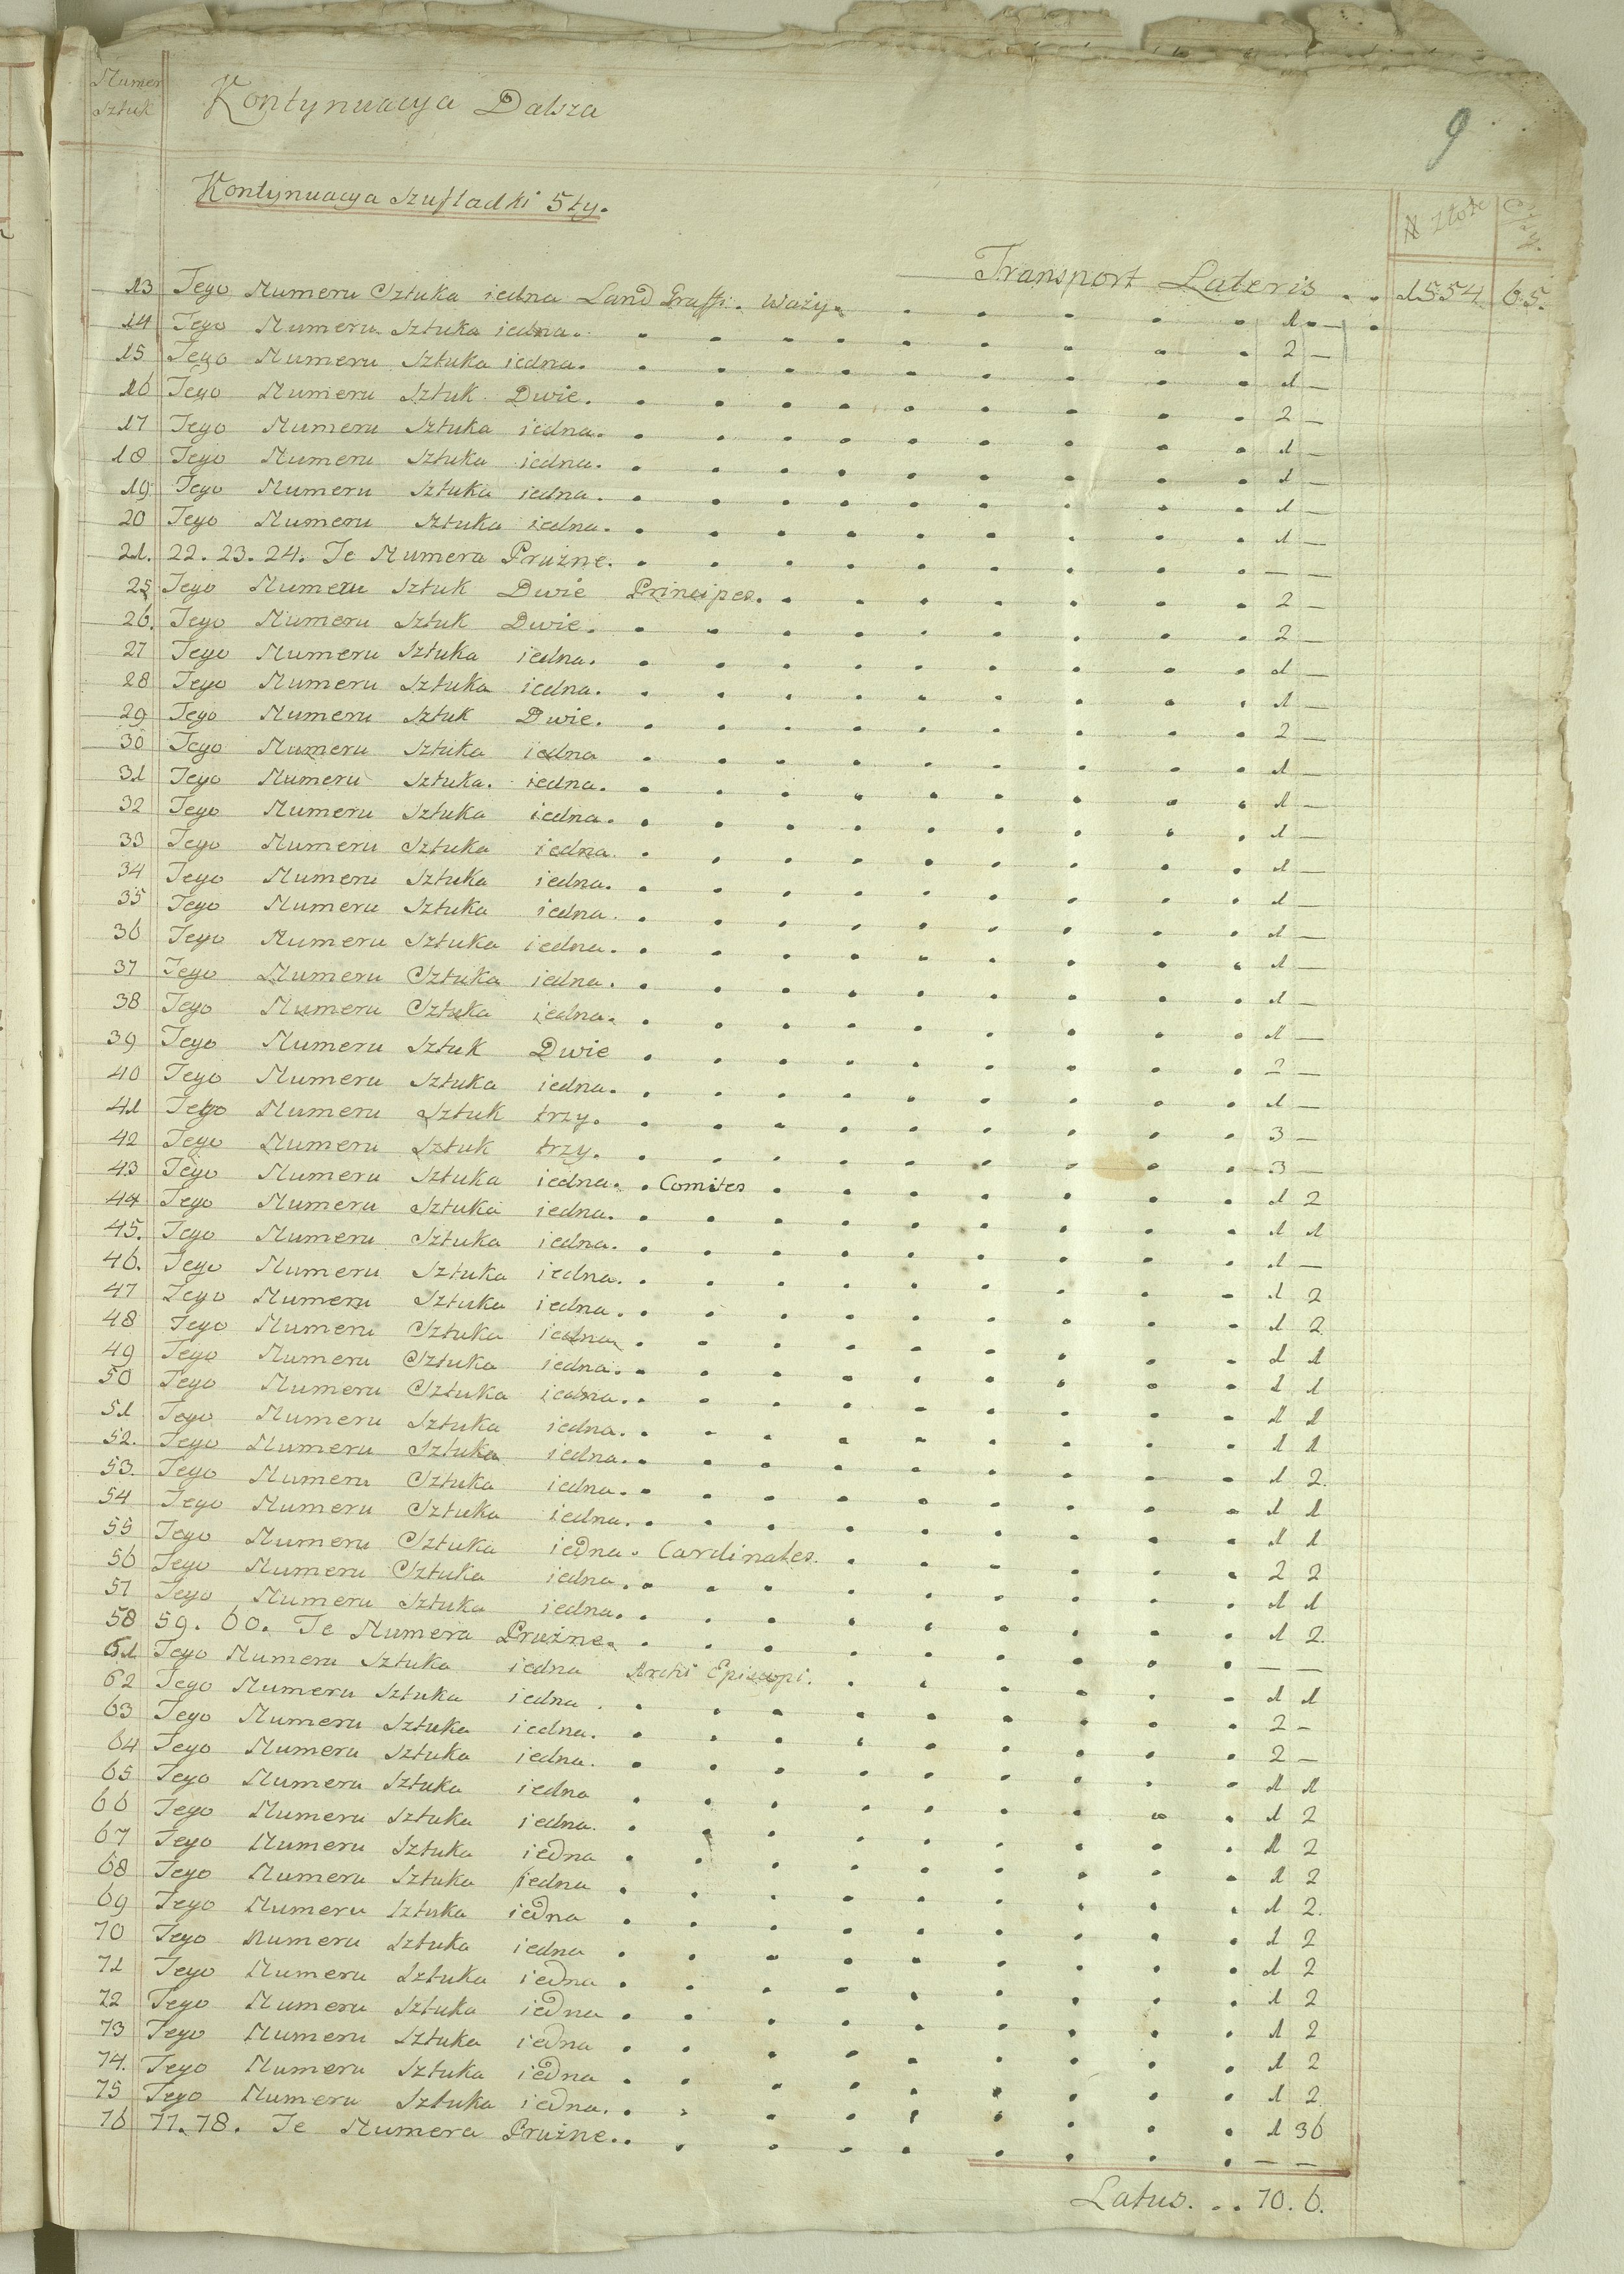 Numer
Sztuk
Kontynuacya Dalsza
9
Kontynuacya Szufladki 5ty.
N Złote
Transport Lateris . . 1554 65.
13 Tego Numeru Sztuka iedna Land Graffi. Waży. 1. —
14 Tego Numeru Sztuka iedna. 2 —
15 Tego Numeru Sztuka iedna. 1 —
16 Tego Numeru Sztuk Dwie. 2 —
17 Tego Numeru Sztuka iedna. 1 —
18 Tego Numeru Sztuka iedna. 1 —
19 Tego Numeru Sztuka iedna. 1 —
20 Tego Numeru Sztuka iedna. 1 —
21. 22. 23. 24. Te Numera Prużne. — —
25 Tego Numeru Sztuk Dwie Principes. 2 —
26. Tego Numeru Sztuk Dwie. 2 —
27 Tego Numeru Sztuka iedna. 1 —
28 Tego Numeru Sztuka iedna. 1 —
29 Tego Numeru Sztuk Dwie. 2 —
30 Tego Numeru Sztuka iedna 1 —
31 Tego Numeru Sztuka. iedna. 1 —
32 Tego Numeru Sztuka iedna. 1 —
33 Tego Numeru Sztuka iedna. 1 —
34 Tego Numeru Sztuka iedna. 1 —
35 Tego Numeru Sztuka iedna. 1 —
36 Tego Numeru Sztuka iedna. 1 —
37 Tego Numeru Sztuka iedna. 1 —
38 Tego Numeru Sztuka iedna. 1 —
39 Tego Numeru Sztuk Dwie 2 —
40 Tego Numeru Sztuka iedna. 1 —
41 Tego Numeru Sztuk trzy. 3 —
42 Tego Numeru Sztuk trzy. 3 —
43 Tego Numeru Sztuka iedna. . Comites 1 2
44 Tego Numeru Sztuka iedna. 1 1
45. Tego Numeru Sztuka iedna. 1 —
46. Tego Numeru Sztuka iedna. 1 2
47 Tego Numeru Sztuka iedna. 1 2
48 Tego Numeru Sztuka iedna. 1 1
49 Tego Numeru Sztuka iedna. 1 1
50 Tego Numeru Sztuka iedna. 1 1
51 Tego Numeru Sztuka iedna. 1 1
52. Tego Numeru Sztuka iedna. 1 2.
53. Tego Numeru Sztuka iedna. 1 1
54 Tego Numeru Sztuka iedna. 1 1
55 Tego Numeru Sztuka iedna. Cardinales. 2 2
56 Tego Numeru Sztuka iedna. 1 1
57 Tego Numeru Sztuka iedna. 1 2.
58 59. 60. Te Numera Prużne. — —
61 Tego Numeru Sztuka iedna Archi Episcopi. 1 1
62 Tego Numeru Sztuka iedna. 2 -
63 Tego Numeru Sztuka iedna. 2 —
64 Tego Numeru Sztuka iedna. 1 1
65 Tego Numeru Sztuka iedna 1 2
66 Tego Numeru Sztuka iedna. 1 2
67 Tego Numeru Sztuka iedna 1 2
68 Tego Numeru Sztuka iedna 1 2.
69 Tego Numeru Sztuka iedna 1 2
70 Tego Numeru Sztuka iedna 1 2
71 Tego Numeru Sztuka iedna 1 2
72 Tego Numeru Sztuka iedna 1 2
73 Tego Numeru Sztuka iedna 1 2
74. Tego Numeru Sztuka iedna 1 2.
75 Tego Numeru Sztuka iedna. 1 36
76 77. 78. Te Numera Prużne. — —
Latus. . . 70. 6.